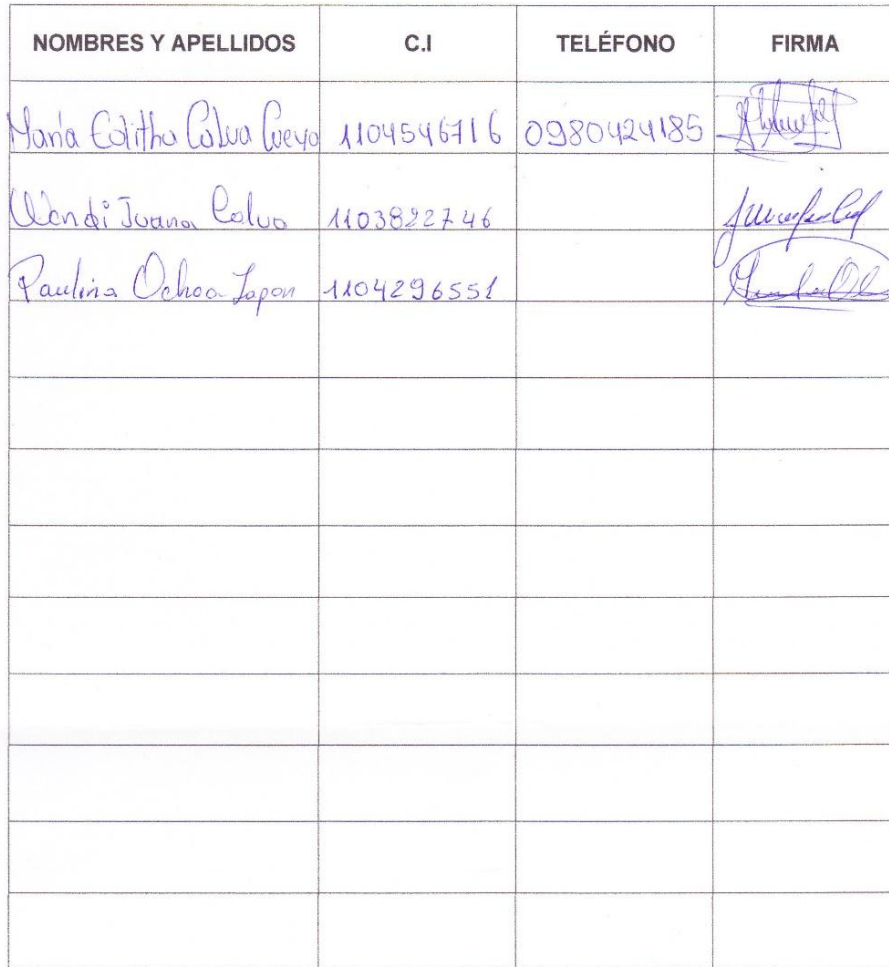 NOMBRES Y APELLIDOS C.I TELÉFONO FIRMA
María Colitha Calva Cueva 1104546716 0980424185
Wendi Juana Calva 1103822746
Paulina Ochoa Japon 1104296551